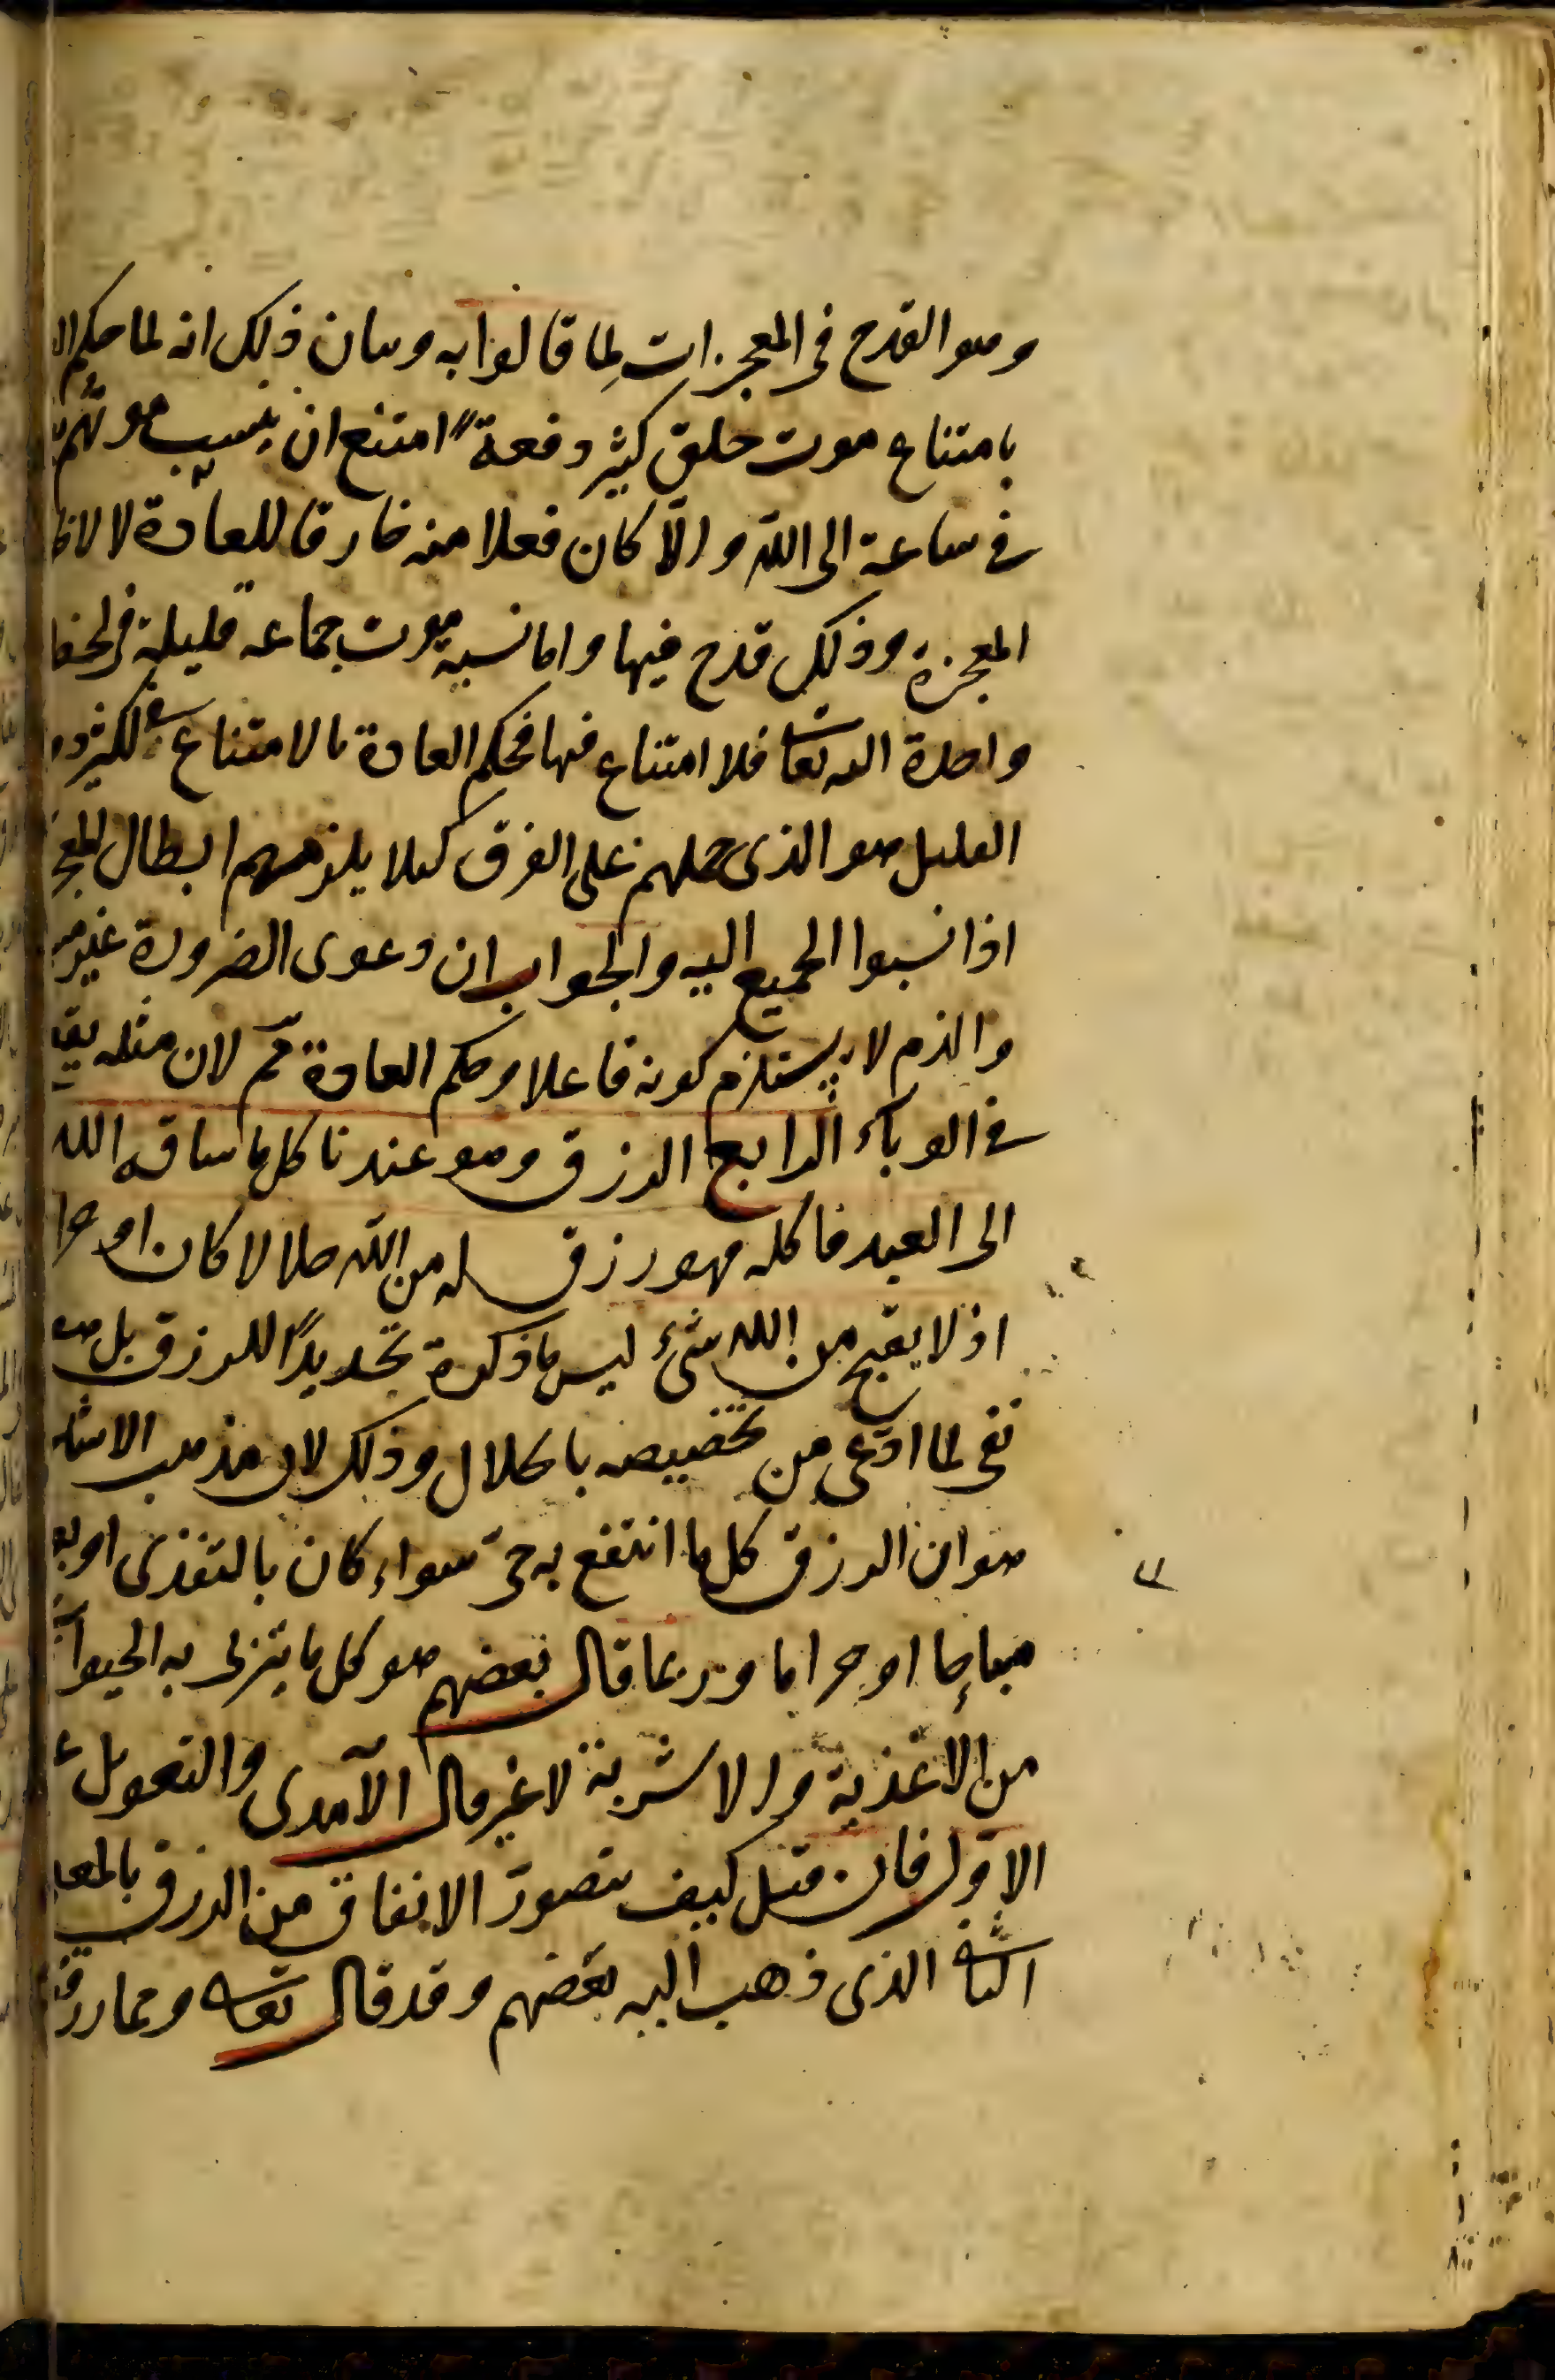 وهو القدح فى المعجزات لما قالوا به وبيان ذلك انه لما حكم ال
بامتناع موت خلق كثير دفعةً امتنع ان ينسب موتهم
فى ساعة الى الله والّا كان فعلا منه خارقا للعادة لا لاظ
المعجزة وذلك قدح فيها واما نسبة موت جماعه قليلة فى لحظ
واحدة اليه تعا فلا امتناع فيها فحكم العادة بالامتناع فى الكثير دو
القليل هو الذى حملهم على الفرق كيلا يلزمهم ابطال المعج
اذا نسبوا الجميع اليه والجواب ان دعوى الضرورة غير
والذم لا يستلزم كونه فاعلا وحكم العادة مم لان مثله يق
فى الوباء الرابع الرزق وهو عندنا كل ما ساقه الله
الى العبد فاكله فهو رزق له من الله حلالا كان او حرا
اذ لا يقبح من الله شئ ليس ما ذكره تحديدًا للرزق بل هو
نفى لما ادّعى من تخصيصه بالحلال وذلك لان مذهب الاشا
هو ان الرزق كل ما انتفع به حىّ سواء كان بالتغذى او بغ
مباحا او حراما وربما قال بعضهم هو كل ما يتربى به الحيوا
من الاغذية والاشربة لا غير قال الآمدى والتعويل ع
الاوّل فان قيل كيف يتصور الانفاق من الرزق بالمع
الثانى الذى ذهب اليه بعضهم وقد قال تعا ومما رزق